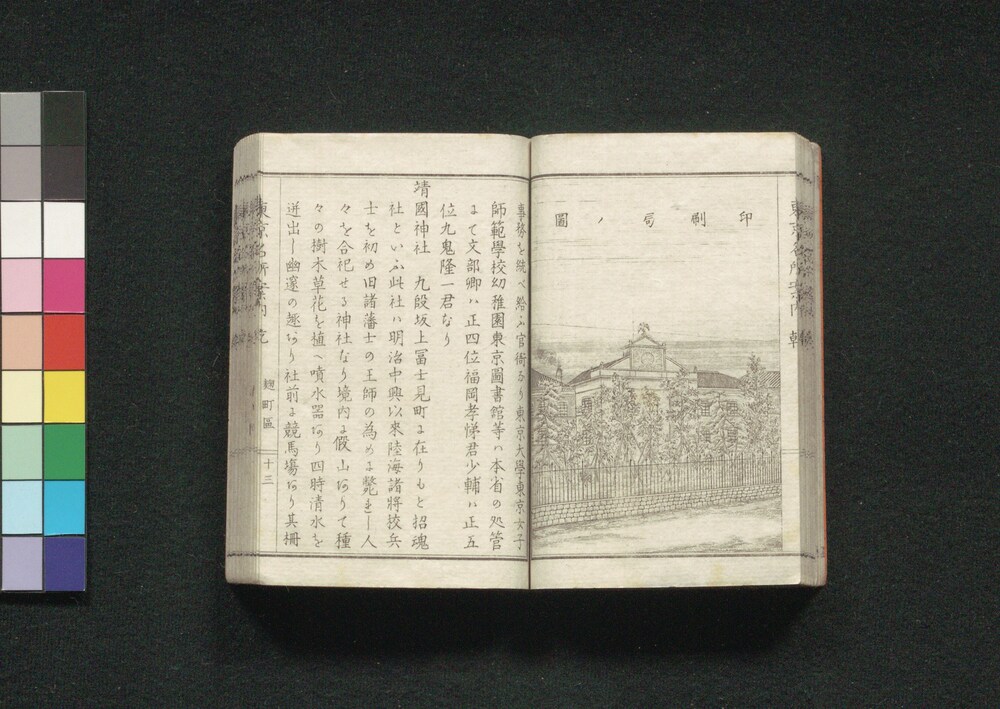 印刷局ノ圖
事務を統べ給ふ官衙なり東京大學東京女子
師範學校幼稚園東京圖書館等ハ本省の処管
にて文部卿ハ正四位福岡孝悌君少輔ハ正五
位九鬼隆一君なり
靖國神社 九段坂上冨士見町に在りもと招魂
社といふ此社ハ明治中興以來陸海諸將挍兵
士を初め旧諸藩士の王師の為めに斃れし人
々を合祀せる神社なり境内に假山ありて種
々の樹木草花を植へ噴水器あり四時清水を
迸出し幽邃の趣あり社前に競馬塲あり其柵
東京名所案内
麹町區
十三